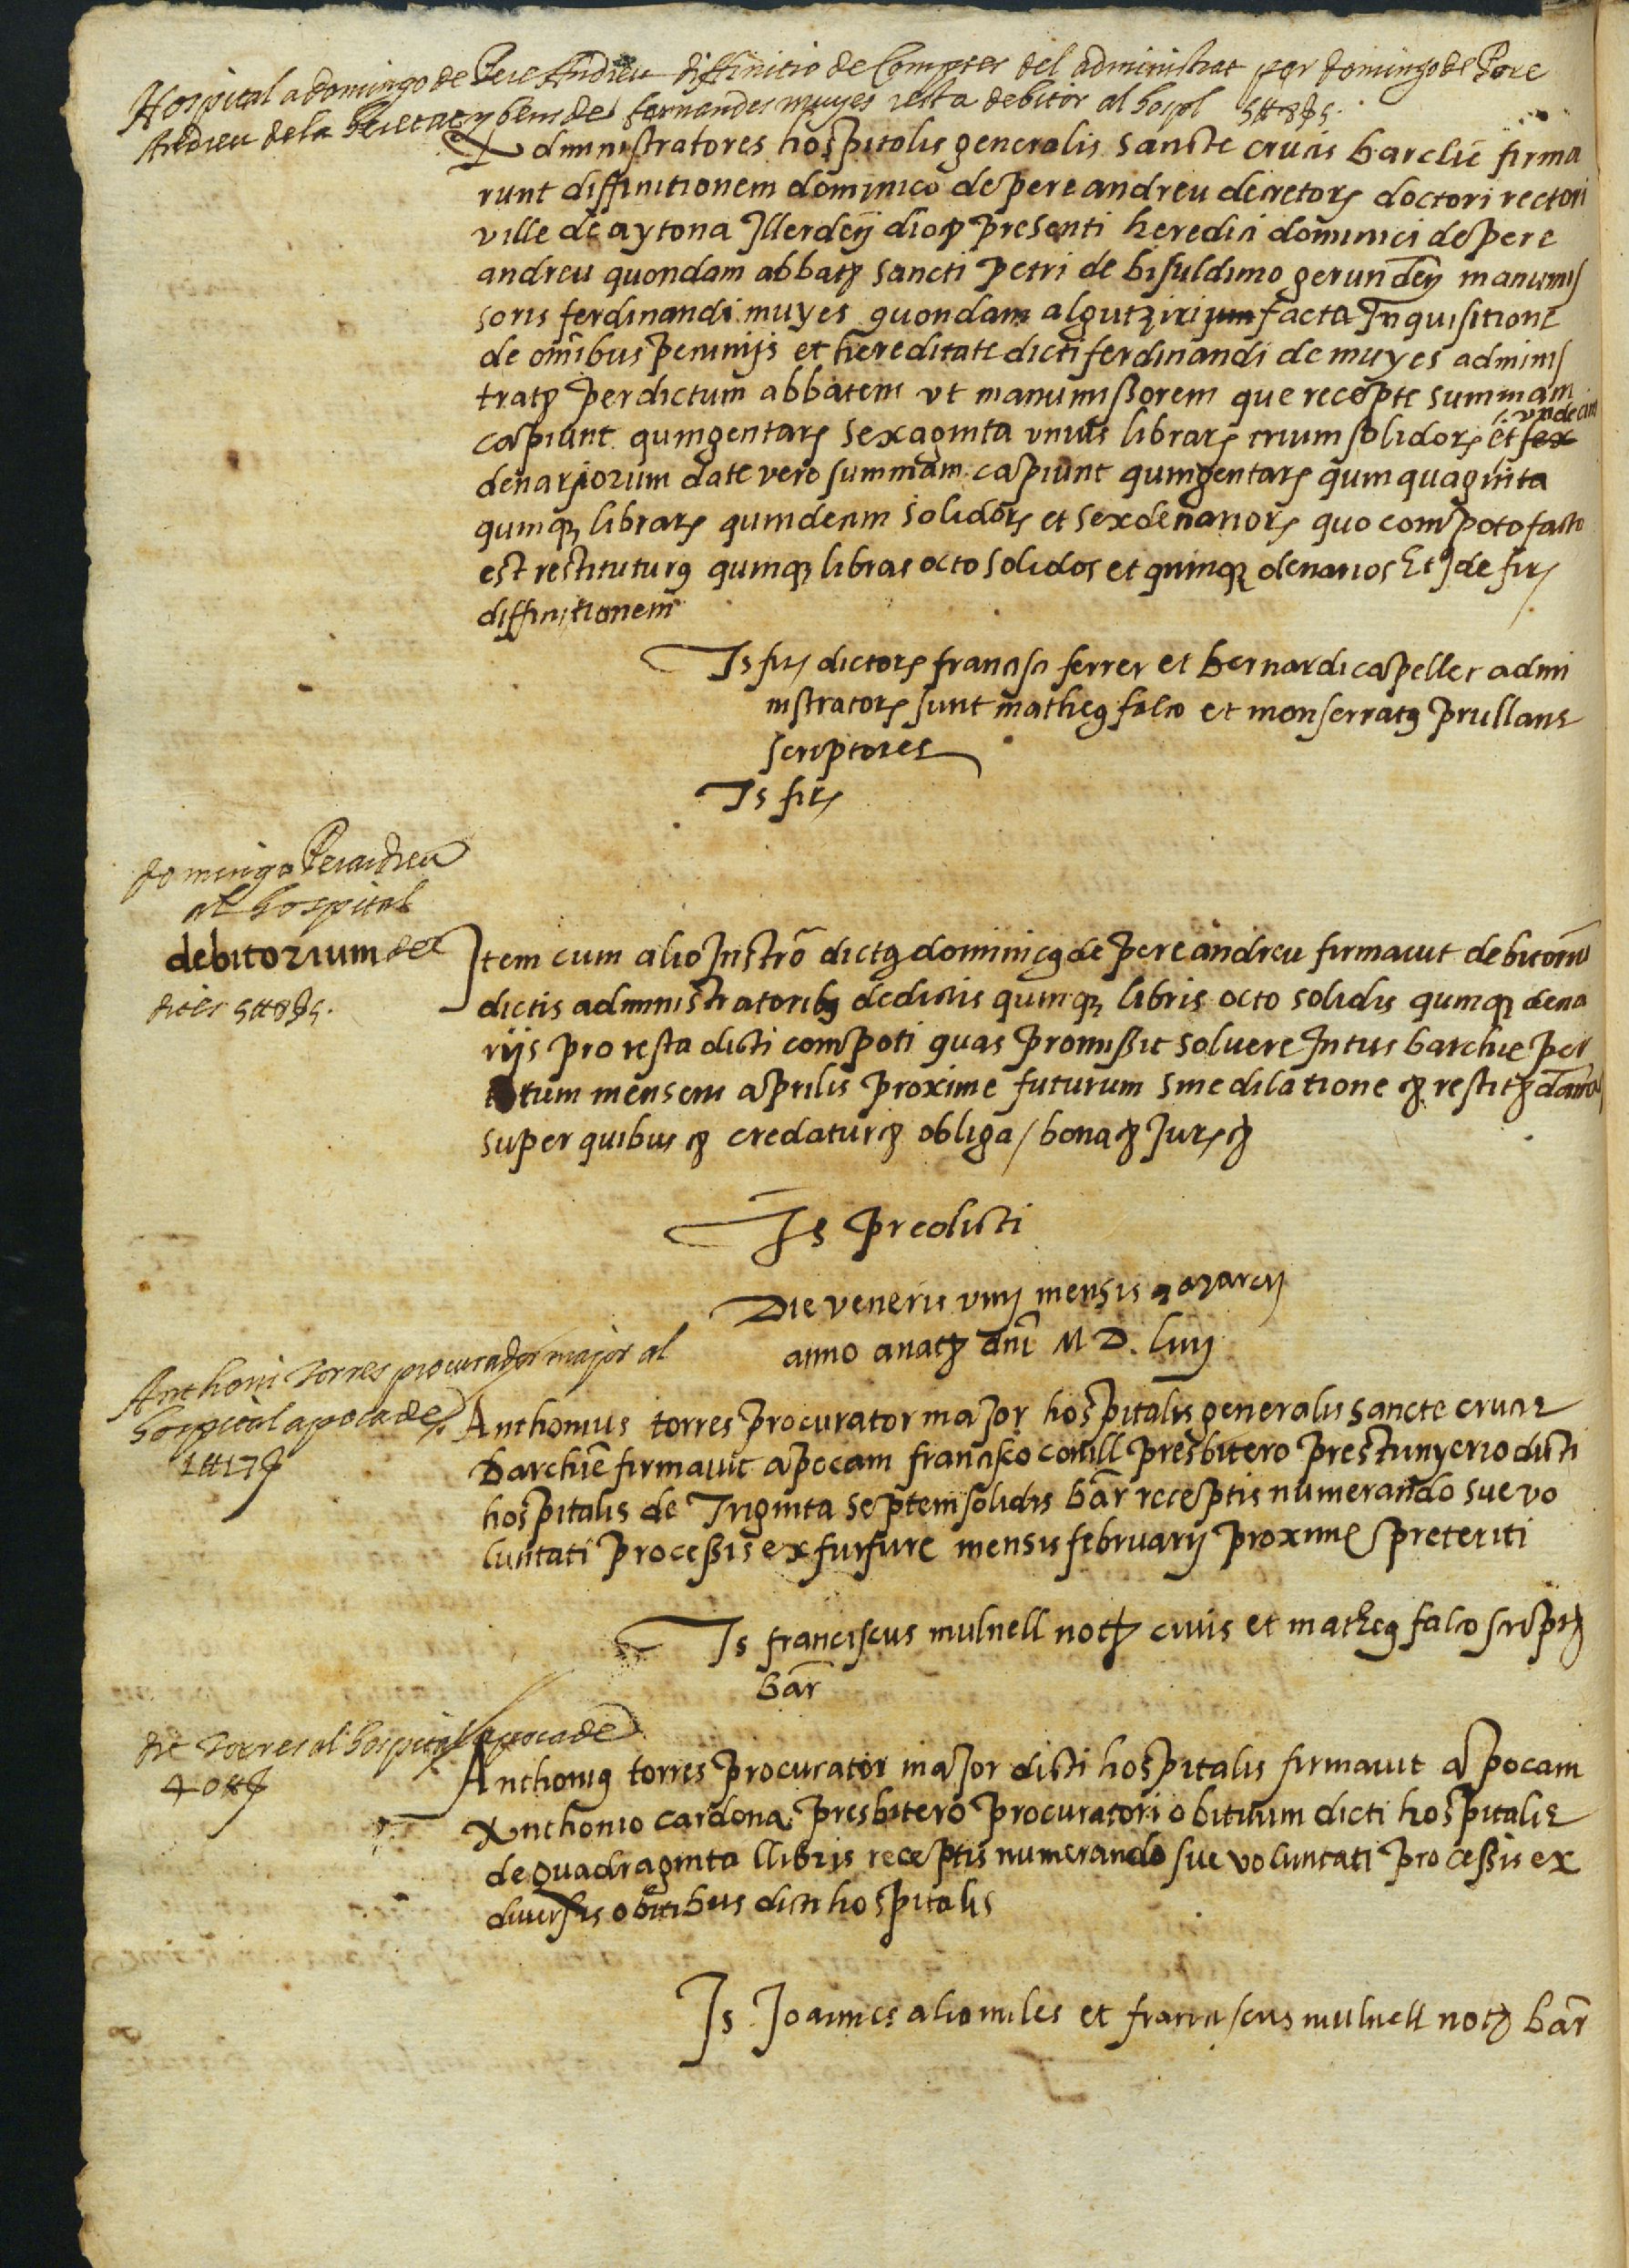 Hospital a domingo de Pere Andreu diffinitio de Comptes del administrat per domingo de Pere
Andreu de la heretat y bens de fernandes muyes resta debitor al hospl 5 ℔ 8 ß 5.
Administratores hospitalis generalis sancte crucis barclīe firma
runt diffinitionem dominico de pere andreu decretorꝝ doctori rectori
ville de aytona Illerdeñ dioc̄ presenti heredi dominici de pere
andreu quondam abbatꝭ sancti petri de bisuldimo gerundeñ manumis
soris ferdinandi muyes quondam algutzirium facta Inquisitione
de om̄ibus pecunijs et hereditate dicti ferdinandi de muyes adminis
tratꝭ per dictum abbatem vt manumissorem que recepte summam
undecim
capiunt quingentarꝝ sexaginta unius librarꝝ trium solidorꝝ et sex
denariorum date vero summam capiunt quingentarꝝ quinquaginta
quinqꝫ librarꝝ quindecim solidorꝝ et sex denariorꝝ quo compoto facto
est restiturꝰ quinqꝫ libras octo solidos et quinqꝫ denarios Et Ide firꝫ
diffinitionem
Ts firꝫ dictorꝝ francisci ferrer et bernardi capeller admi
nistratorꝝ sunt matheꝰ falco et monserratꝰ prullans
scriptores
Ts firꝫ
domingo Perandreu
al hospital
debitorium de
dites 5 ℔ 8 ß 5.
Item cum alio Instrō dictꝰ dominicꝰ de pere andreu firmauit debitoriū
dictis administratoribꝰ de dictis quinqꝫ libris octo solidis quinqꝫ dena
rijs pro resta dicti compoti quas promissit soluere Intus barchīe per
totum mensem aprilis proxime futurum sine dilatione ꝛc̄ restitꝭ damna
super quibus ꝛc̄ credatur ꝛc̄ obliga / bona ꝛc̄ Jurꝝ ꝛc̄
Ts predicti
Die veneris viiij mensis marcij
anno a natꝭ dn̄i M D. liiij
Anthoni torres procurador major al
hospital apoca de
1 ℔ 17 ß
Anthonius torres procurator major hospitalis generalis sancte crucis
Barchīe firmauit apocam francisco conill presbitero prestunyerio dicti
hospitalis de Triginta septem solidis bar̄ receptis numerando sue vo
luntati processis ex furfure mensis februarij proxime preteriti
Ts franciscus mulnell notꝭ ciuis et matheꝰ falco scriptꝭ
bar̄
dit torres al hospital apoca de
40 ℔
Anthoniꝰ torres procurator major dicti hospitalis firmauit apocam
Anthonio cardona presbitero procuratori obituum dicti hospitalis
de quadraginta llibris receptis numerando sue voluntati processis ex
diuersis obitibus dicti hospitalis
Ts Joannes alio miles et franciscus mulnell notꝭ bar̄